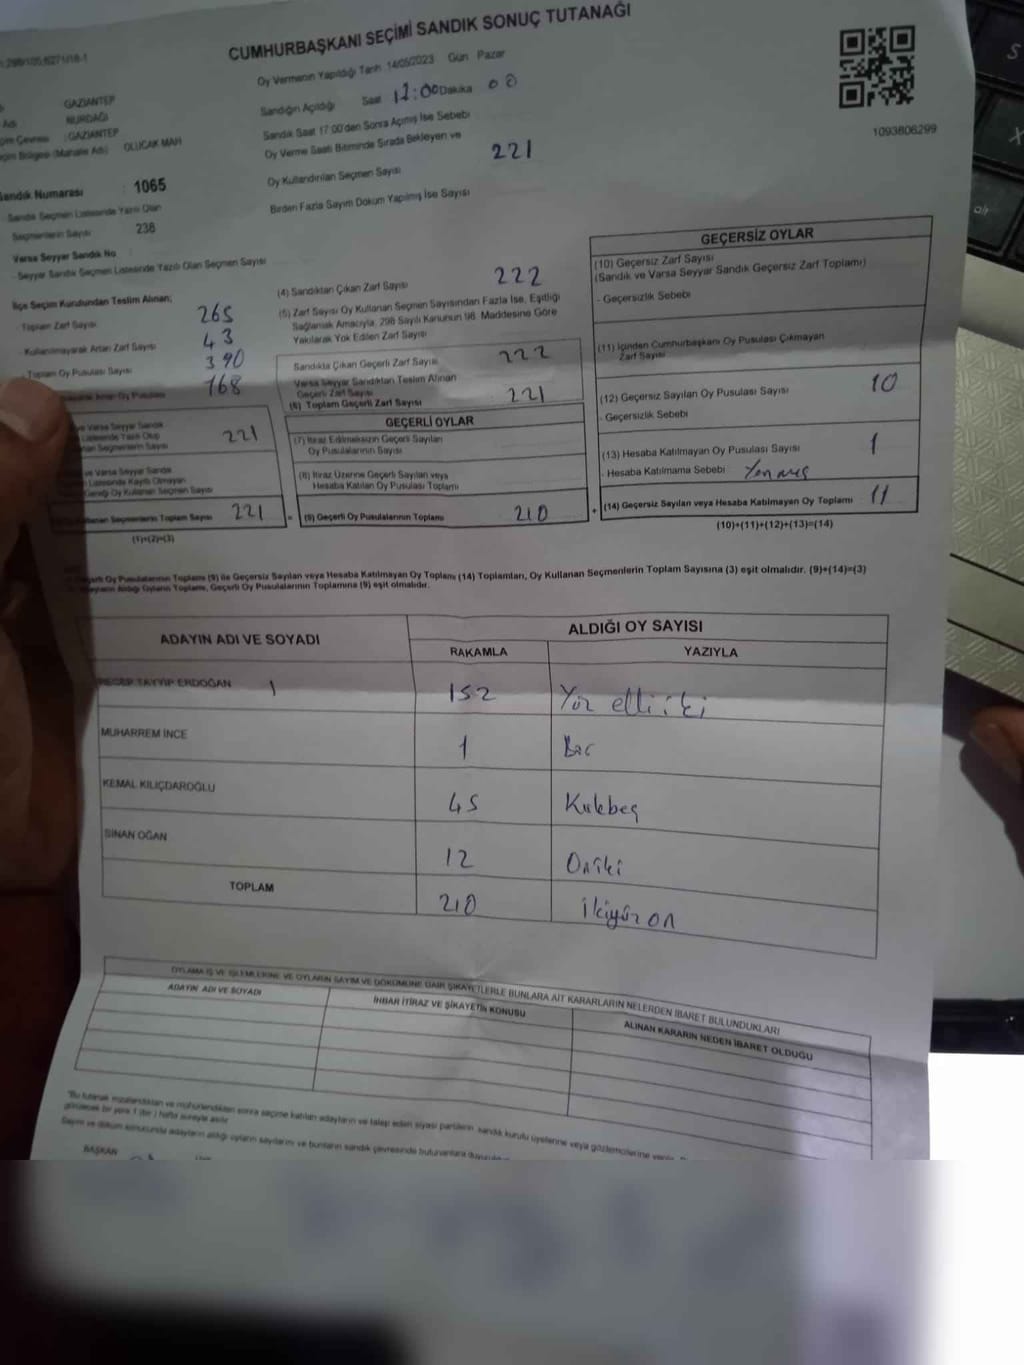 CUMHURBAŞKANI SEÇİMİ SANDIK SONUÇ TUTANAĞI
Oy Vermenin Yapıldığı Tarih 14/05/2023 Gün Pazar
GAZİANTEP
Adı NURDAĞI
GAZİANTEP
(Mahalle Adı) OLUCAK MAH
Sandık Numarası : 1065
Sandık Seçmen Listesinde Yazılı Olan
Seçmenlerin Sayısı 238
Varsa Seyyar Sandık No
- Seyyar Sandık Seçmen Listesinde Yazılı Olan Seçmen Sayısı
Sandığın Açıldığı Saat 17:00 Dakika 00
Sandık Saat 17:00'den Sonra Açılmış İse Sebebi
Oy Verme Saati Bitiminde Sırada Bekleyen ve
Oy Kullandırılan Seçmen Sayısı 221
Birden Fazla Sayım Döküm Yapılmış İse Sayısı
1093806299
İlçe Seçim Kurulundan Teslim Alınan;
- Toplam Zarf Sayısı 265
- Kullanılmayarak Artan Zarf Sayısı 43
- Toplam Oy Pusulası Sayısı 390
Artan Oy Pusulası 168
ve Varsa Seyyar Sandık
Listesinde Yazılı Olup
Seçmenlerin Sayısı 221
ve Varsa Seyyar Sandık
Listesinde Kayıtlı Olmayan
Gereği Oy Kullanan Seçmen Sayısı
Kullanan Seçmenlerin Toplam Sayısı 221
(1)+(2)=(3)
(4) Sandıktan Çıkan Zarf Sayısı 222
(5) Zarf Sayısı Oy Kullanan Seçmen Sayısından Fazla İse, Eşitliği
Sağlamak Amacıyla, 298 Sayılı Kanunun 98. Maddesine Göre
Yakılarak Yok Edilen Zarf Sayısı
Sandıkta Çıkan Geçerli Zarf Sayısı 222
Varsa Seyyar Sandıktan Teslim Alınan
Geçerli Zarf Sayısı
(6) Toplam Geçerli Zarf Sayısı 221
GEÇERLİ OYLAR
(7) İtiraz Edilmeksizin Geçerli Sayılan
Oy Pusulalarının Sayısı
(8) İtiraz Üzerine Geçerli Sayılan veya
Hesaba Katılan Oy Pusulası Toplamı
= (9) Geçerli Oy Pusulalarının Toplamı 210
GEÇERSİZ OYLAR
(10) Geçersiz Zarf Sayısı
(Sandık ve Varsa Seyyar Sandık Geçersiz Zarf Toplamı)
- Geçersizlik Sebebi
(11) İçinden Cumhurbaşkanı Oy Pusulası Çıkmayan
Zarf Sayısı
(12) Geçersiz Sayılan Oy Pusulası Sayısı 10
- Geçersizlik Sebebi
(13) Hesaba Katılmayan Oy Pusulası Sayısı 1
- Hesaba Katılmama Sebebi Yanmış
+ (14) Geçersiz Sayılan veya Hesaba Katılmayan Oy Toplamı 11
(10)+(11)+(12)+(13)=(14)
Oy Pusulalarının Toplamı (9) ile Geçersiz Sayılan veya Hesaba Katılmayan Oy Toplamı (14) Toplamları, Oy Kullanan Seçmenlerin Toplam Sayısına (3) eşit olmalıdır. (9)+(14)=(3)
Aldığı Oyların Toplamı, Geçerli Oy Pusulalarının Toplamına (9) eşit olmalıdır.
ADAYIN ADI VE SOYADI
ALDIĞI OY SAYISI
RAKAMLA YAZIYLA
RECEP TAYYİP ERDOĞAN 1 152 Yüz elli iki
MUHARREM İNCE 1 Bir
KEMAL KILIÇDAROĞLU 45 Kırkbeş
SİNAN OĞAN 12 Oniki
TOPLAM 210 ikiyüz on
OYLAMA İŞ VE İŞLEMLERİNE VE OYLARIN SAYIM VE DÖKÜMÜNE DAİR ŞİKAYETLERLE BUNLARA AİT KARARLARIN NELERDEN İBARET BULUNDUKLARI
ADAYIN ADI VE SOYADI İHBAR İTİRAZ VE ŞİKAYETİN KONUSU ALINAN KARARIN NEDEN İBARET OLDUĞU
"Bu tutanak imzalandıktan ve mühürlendikten sonra seçime katılan adayların ve talep eden siyasi partilerin sandık kurulu üyelerine veya gözlemcilerine verilir.
görülecek bir yere 1 (bir) hafta süreyle asılır
Sayım ve döküm sonucunda adayların aldığı oyların sayılarını ve bunların sandık çevresinde bulunanlara duyuruldu
BAŞKAN